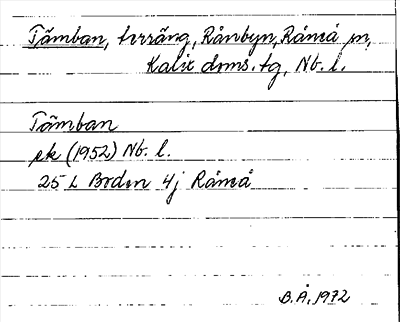 Tämban, terräng, Rånbyn, Råneå sn,
Kalix doms. tg, Nb. l.
Tämban
ek (1952) Nb. l.
25 L Boden 4j Råneå
B.Å, 1972